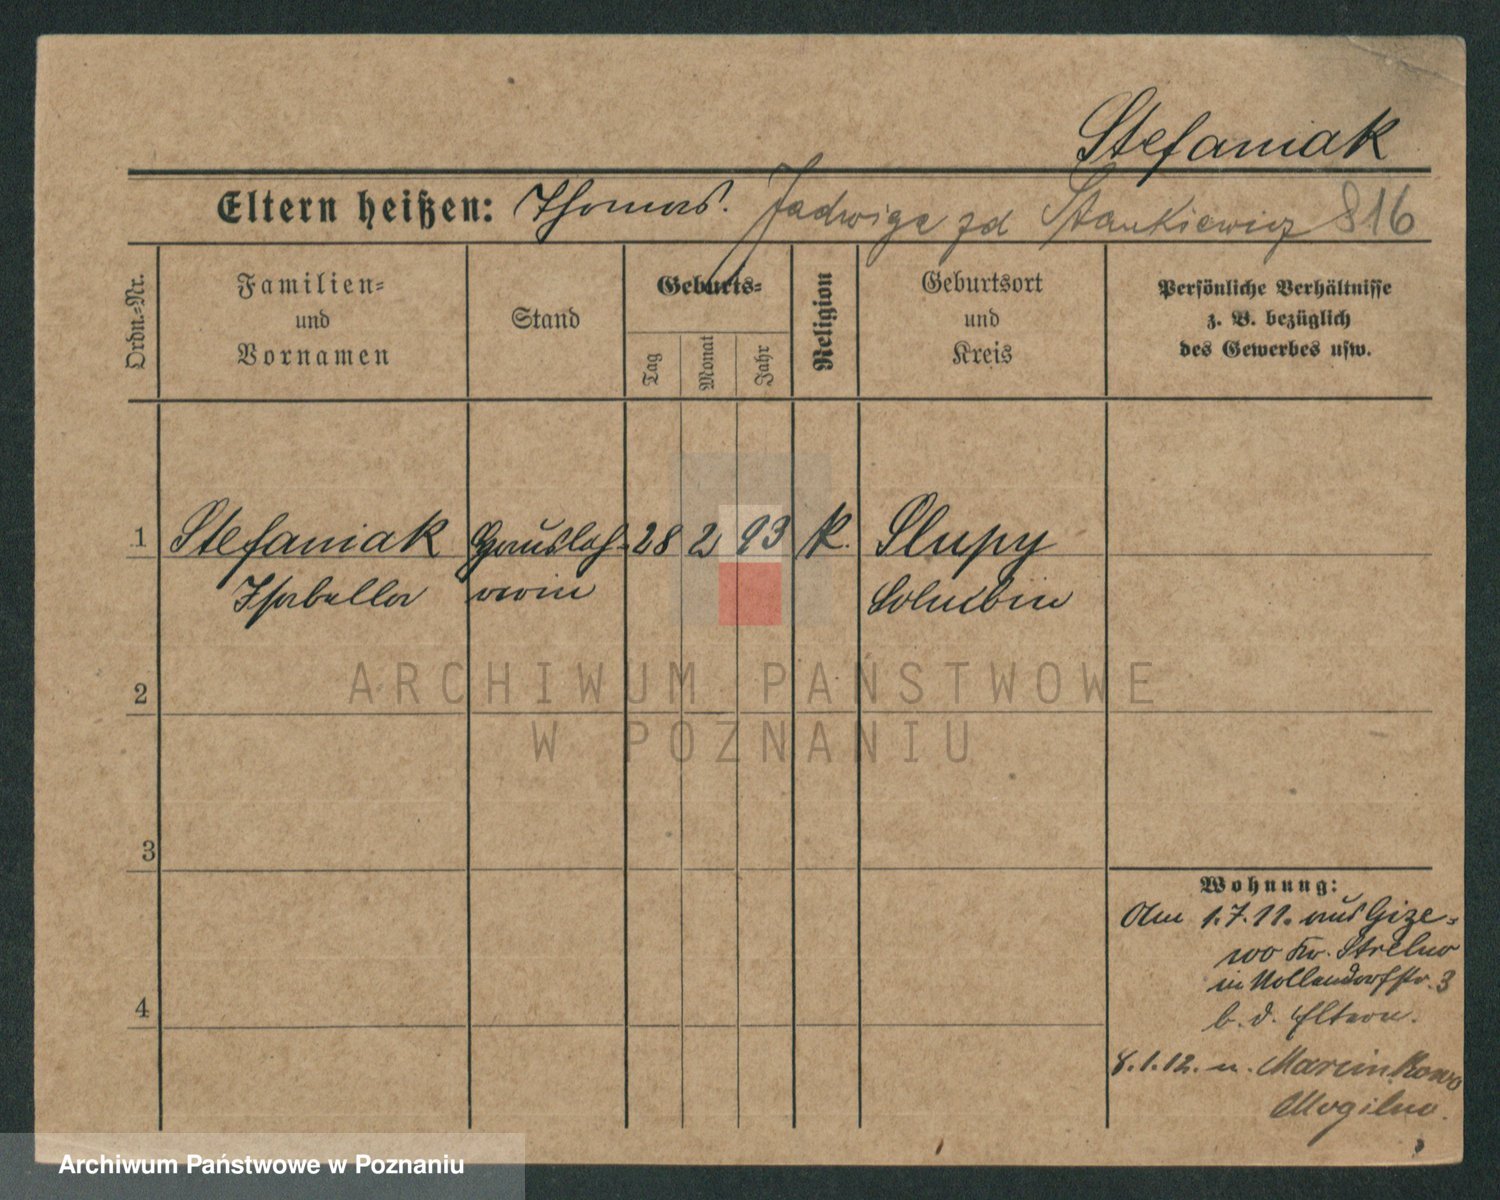 Stefaniak
Eltern heißen: Thomas. Jadwiga zd Stankiewicz 816
Ordn.-Nr.
Familien-
und
Vornamen
Stand
Geburts-
Tag
Monat
Jahr
Religion
Geburtsort
und
Kreis
Persönliche Verhältnisse
z. B. bezüglich
des Gewerbes usw.
1 Stefaniak Hausleh- 28 2 93 k. Slupy
Isabella rerin Schubin
2
3
4
Wohnung:
Am 1.7.11. aus Gize-
wo Kr. Strelno
in Nollendorfstr. 3
b. d. Eltern.
8.1.12. n. Marcinkowo
Mogilno.
ARCHIWUM PAŃSTWOWE
W POZNANIU
Archiwum Państwowe w Poznaniu